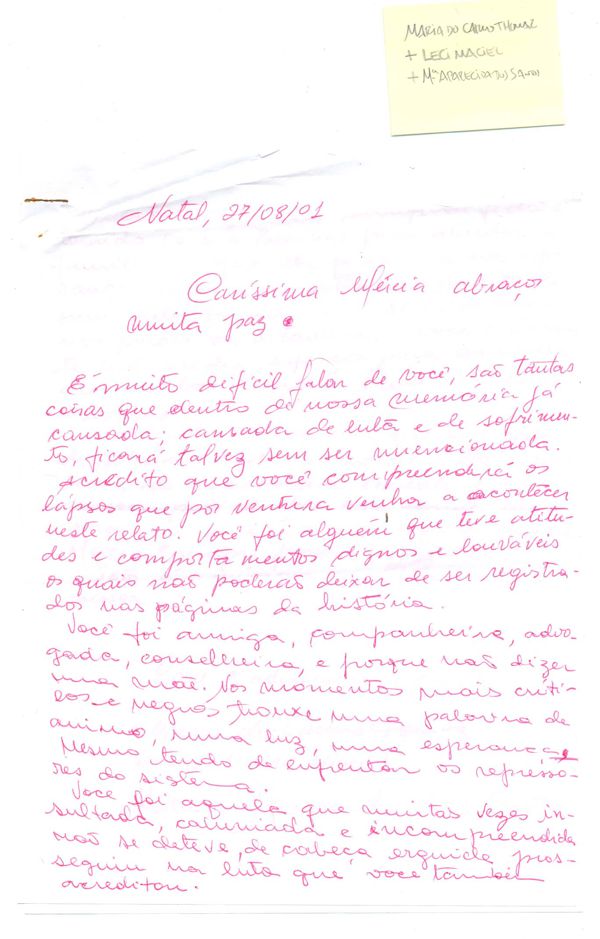 MARIA DO CARMO THOMAZ
+ LECI MACIEL
+ Mª APARECIDA DOS SANTOS
Natal, 27/08/01
Caríssima Mércia abraços
muita paz.
É muito difícil falar de você, são tantas
coisas que dentro de nossa memória já
cansada; cansada de luta e de sofrimen-
to, ficará talvez sem ser mencionada.
Acredito que você compreenderá os
lápsos que por ventura venha a acontecer
neste relato. Você foi alguém que teve atitu-
des e comportamentos dignos e louváveis
os quais não poderão deixar de ser registra-
dos nas páginas da história.
Você foi amiga, companheira, advo-
gada, conselheira, e porque não dizer
uma mãe. Nos momentos mais críti-
cos e negros trouxe uma palavra de
animo, uma luz, uma esperança
mesmo tendo de enfrentar os represso-
res do sistema.
Você foi aquela que muitas vezes in-
sultada, caluniada e incompreendida
não se deteve, de cabeça erguida pros-
seguiu na luta que você também
acreditou.